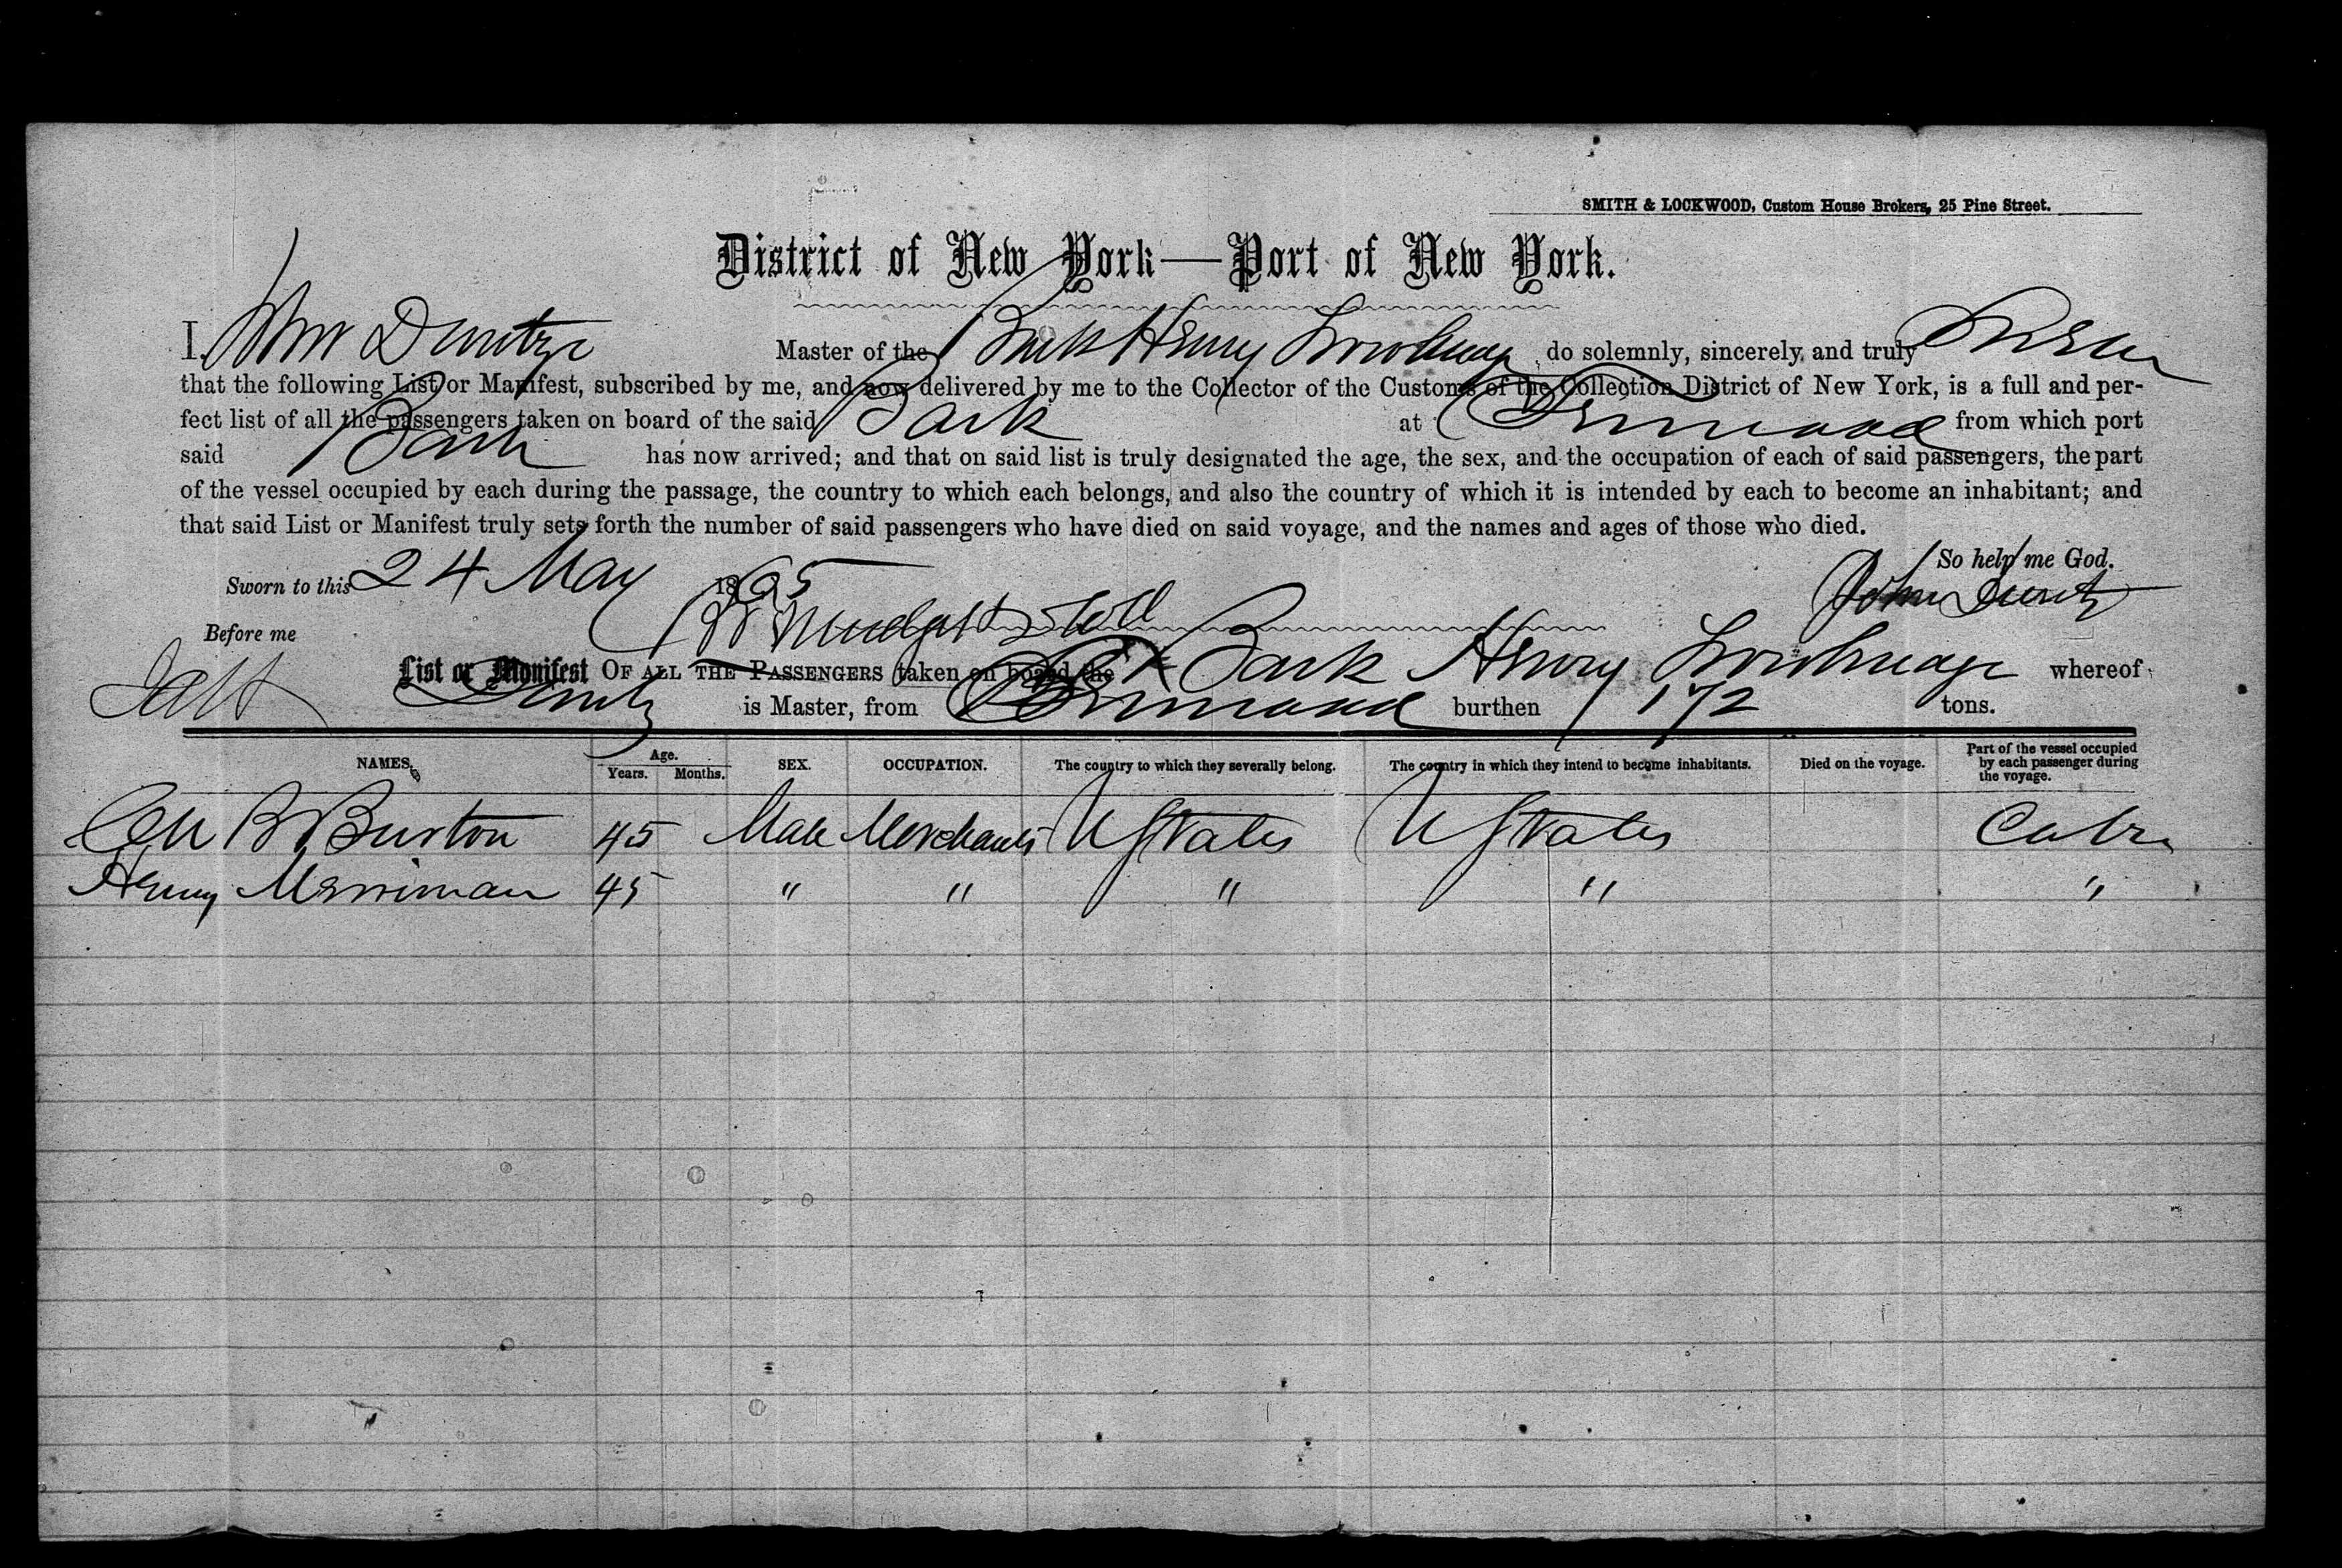 SMITH & LOCKWOOD, Custom House Brokers, 25 Pine Street.
District of New York—Port of New York.
I, John Duntze Master of the Bark Henry Trowbridge do solemnly, sincerely, and truly Swear
that the following List or Manifest, subscribed by me, and now delivered by me to the Collector of the Customs of the Collection District of New York, is a full and per-
fect list of all the passengers taken on board of the said Bark at Trinidad from which port
said Bark has now arrived; and that on said list is truly designated the age, the sex, and the occupation of each of said passengers, the part
of the vessel occupied by each during the passage, the country to which each belongs, and also the country of which it is intended by each to become an inhabitant; and
that said List or Manifest truly sets forth the number of said passengers who have died on said voyage, and the names and ages of those who died.
So help me God.
Sworn to this 24 May 1865 John Duntz
Before me
List or Manifest OF ALL THE PASSENGERS taken on board the Bark Henry Trowbridge whereof
Duntz is Master, from Trinidad burthen 172 tons.
NAMES. Age. Years. Months. SEX. OCCUPATION. The country to which they severally belong. The country in which they intend to become inhabitants. Died on the voyage. Part of the vessel occupied by each passenger during the voyage.
B Burton 45 Male Merchants U States U States Cabin
Henry Merriman 45 " " " " "